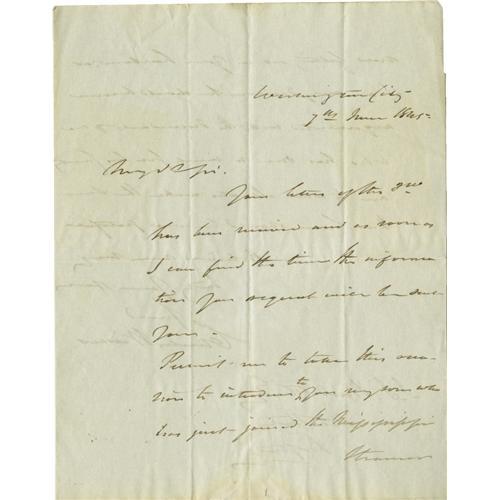 Washington City
7th June 1845
My d Sir.
Your letter of the 2nd
has been received and as soon as
I can find the time the informa
tion you request will be sent
you -
Permit me to take this occa
sion to introduce to you my son who
has just joined the Mississippi
Steamer